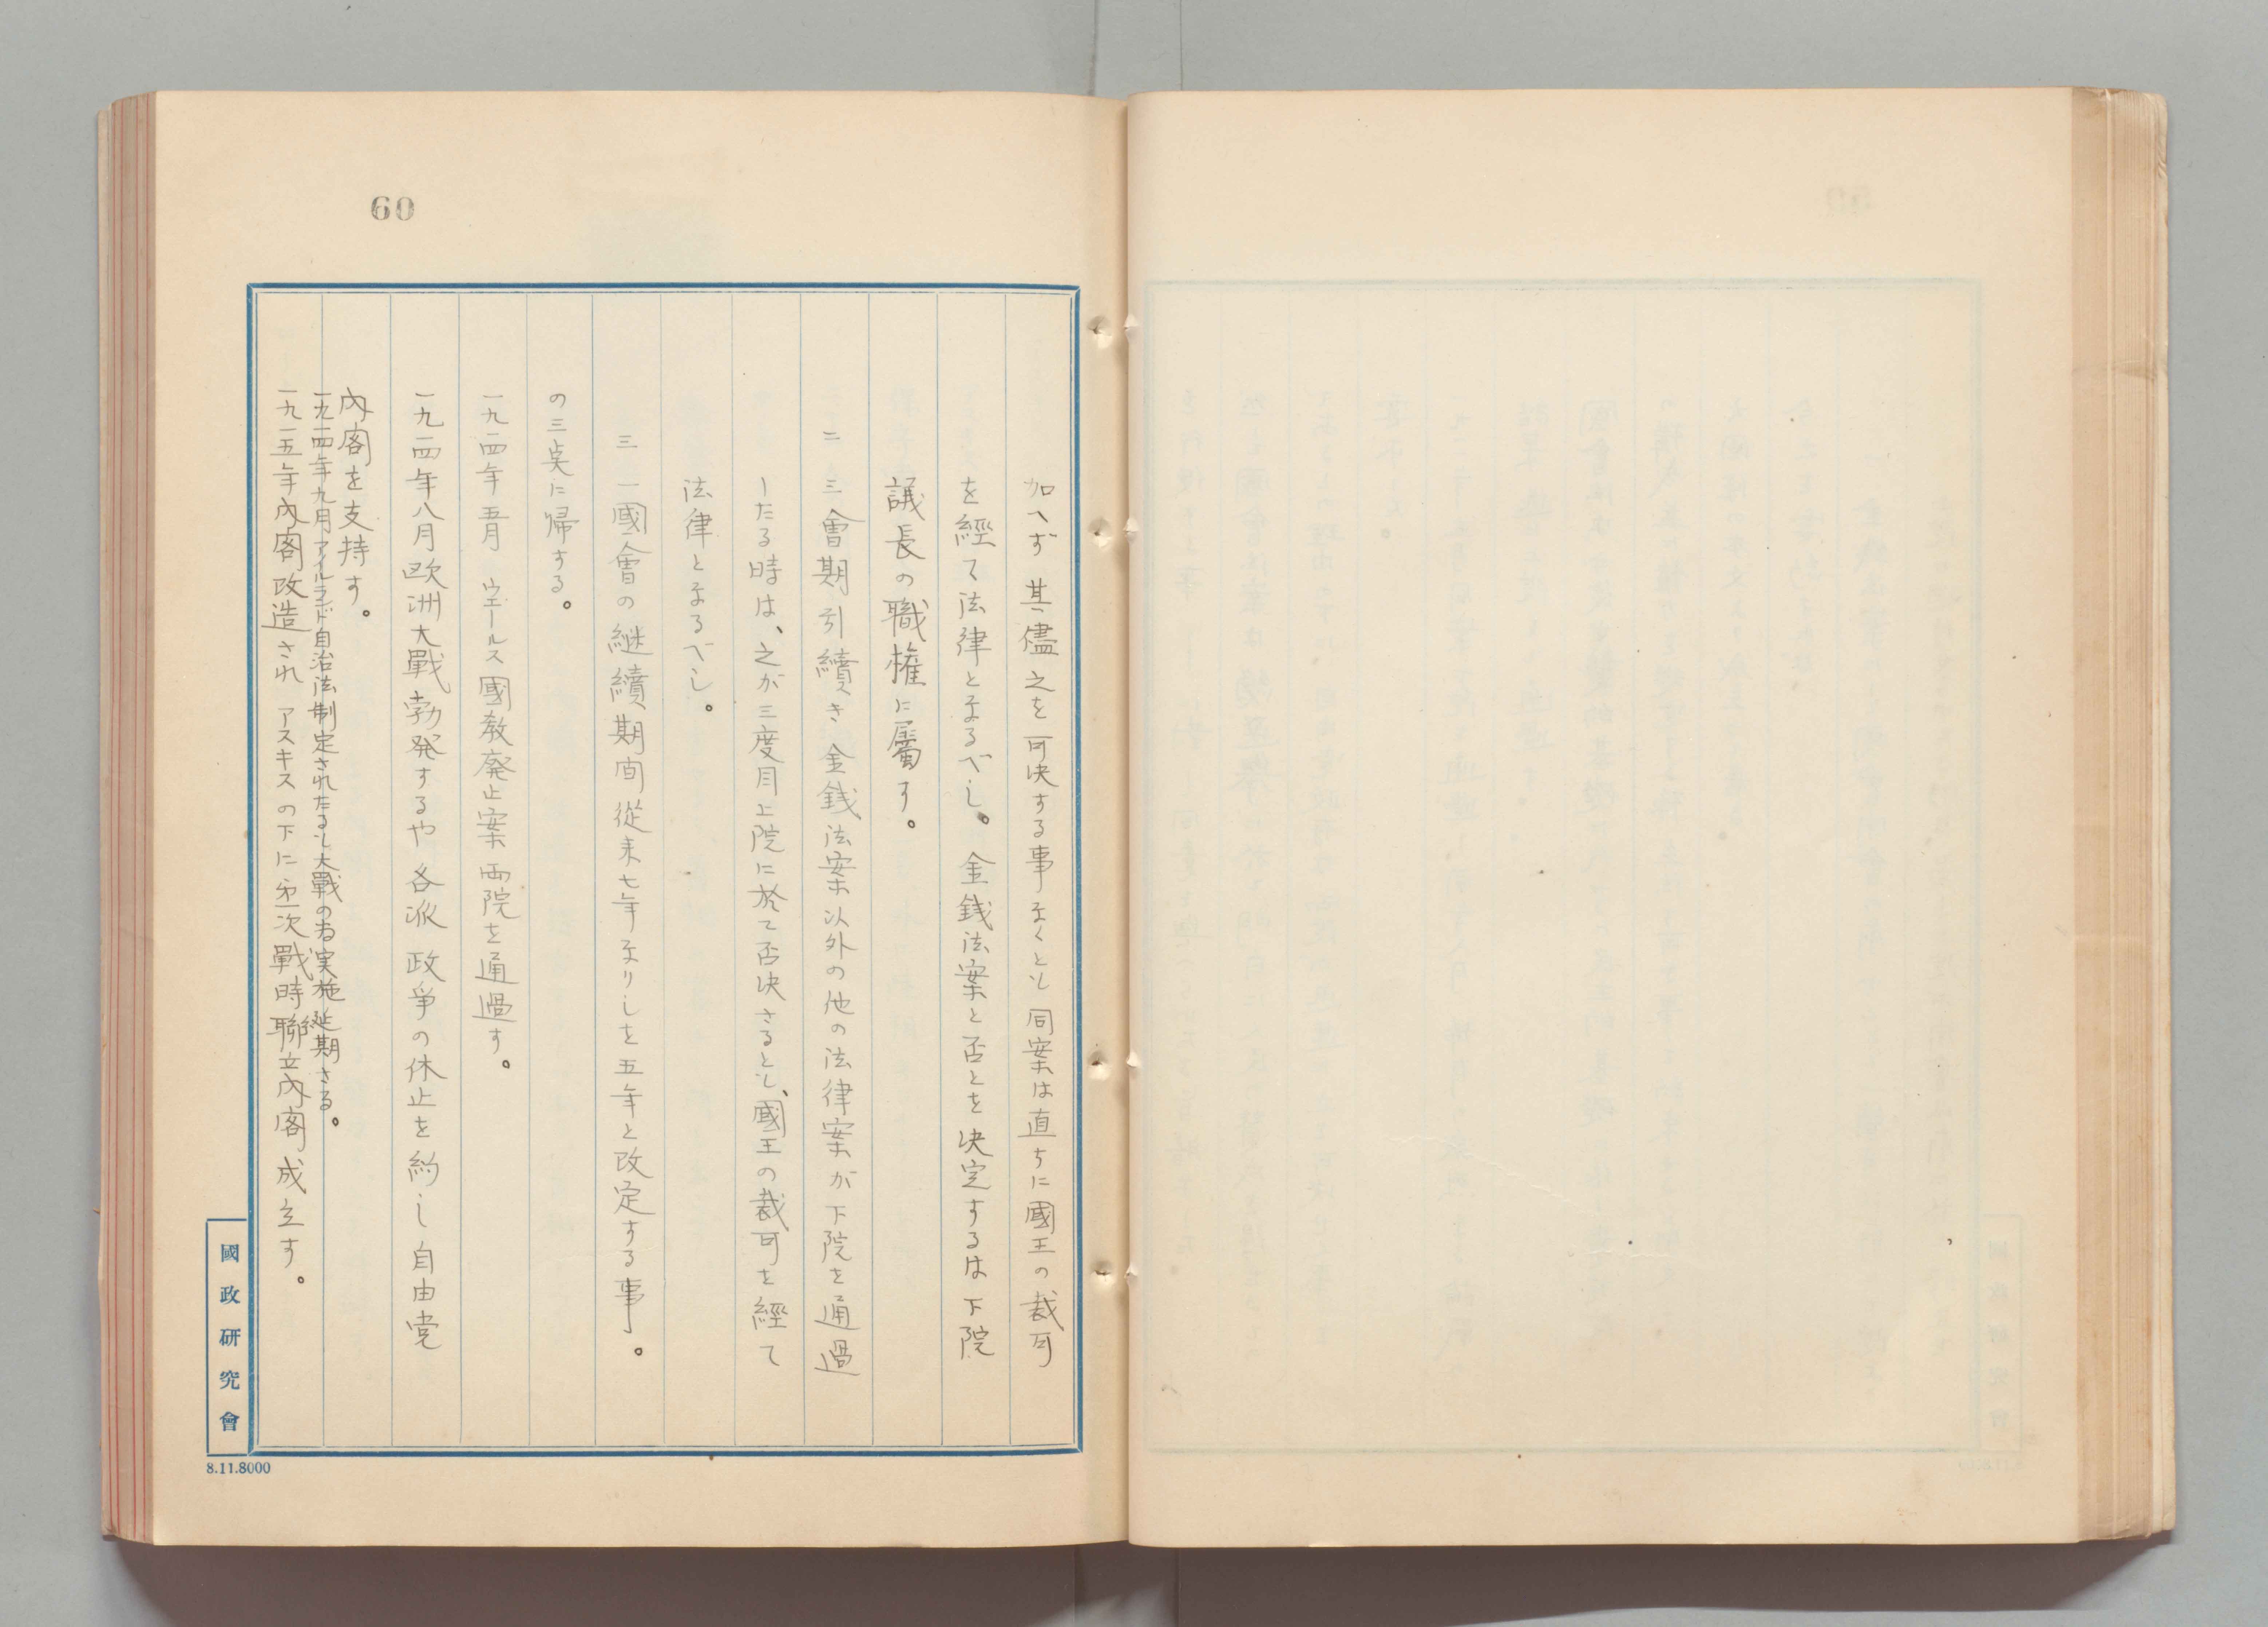 60
加へず其儘之を可決する事なくとも同案は直ちに國王の裁可
を經て法律となるべし。金銭法案と否とを決定するは下院
議長の職権に屬す。
二 三會期引續き金銭法案以外の他の法律案が下院を通過
したる時は、之が三度目上院に於て否決さるとも、國王の裁可を經て
法律となるべし。
三 一國會の継續期間従来七年なりしを五年と改定する事。
の三点に帰する。
一九一四年五月 ウエールス國教廃止案両院を通過す。
一九一四年八月欧洲大戰勃発するや各派政爭の休止を約し自由党
内閣を支持す。
一九一四年九月アイルランド自治法制定されたるも大戰の為実施延期さる。
一九一五年内閣改造されアスキスの下に第一次戰時聯立内閣成立す。
國政研究會
8.11.8000